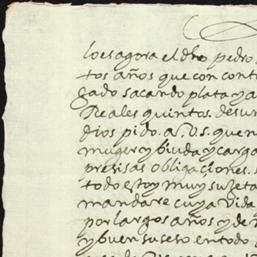 lo es agora el dho pedro
tos años que con cont
gado sacando plata y a
Reales quintos. de su r
dios pido. a. V.S. que n
muger y biuda y carga
presisas obligaciones.
todo estoy muy sujeta
mandarse cuya vida
por largos años y de
y buen suseso en todo